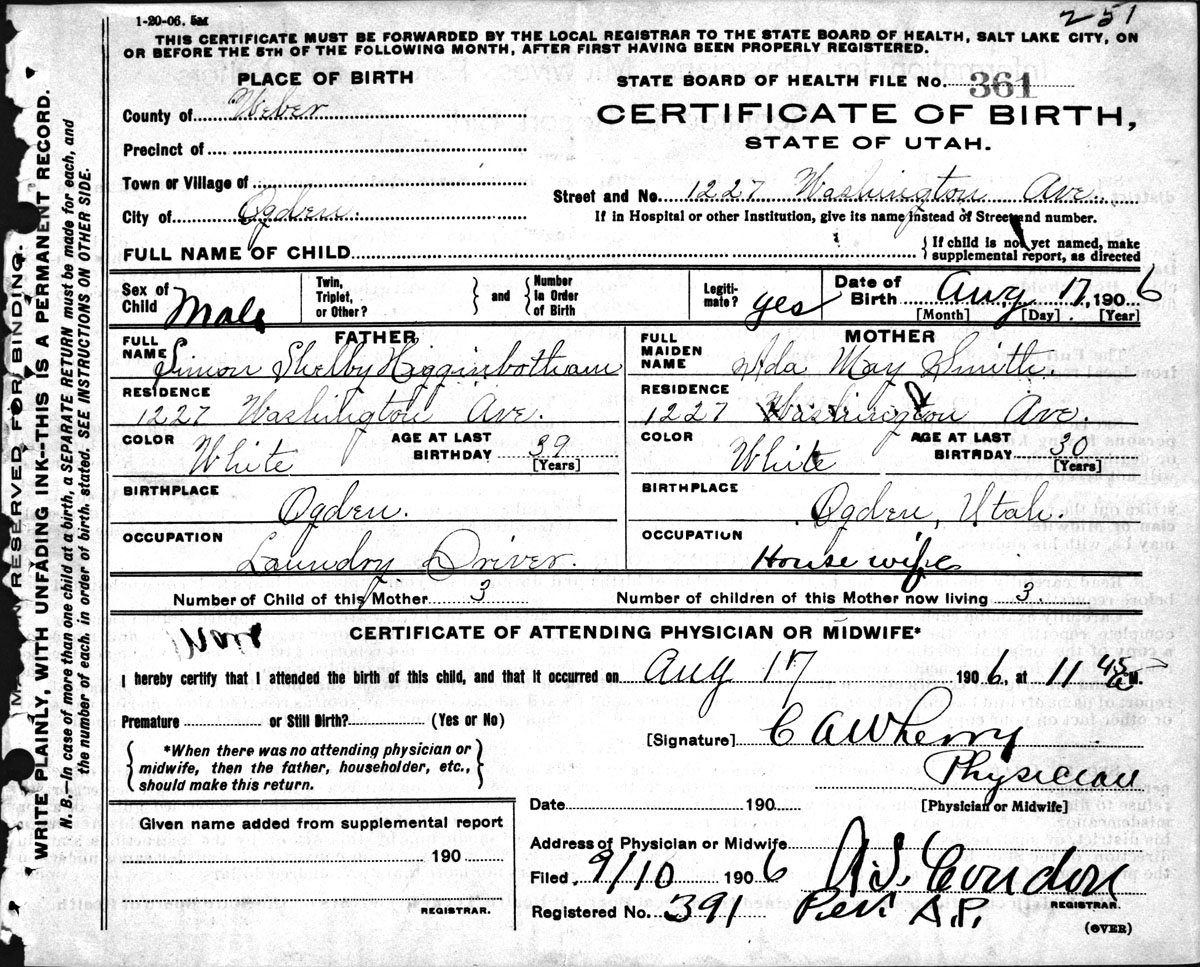 1-20-06. 5m
251
THIS CERTIFICATE MUST BE FORWARDED BY THE LOCAL REGISTRAR TO THE STATE BOARD OF HEALTH, SALT LAKE CITY, ON
OR BEFORE THE 5TH OF THE FOLLOWING MONTH, AFTER FIRST HAVING BEEN PROPERLY REGISTERED.
PLACE OF BIRTH
STATE BOARD OF HEALTH FILE NO. 361
County of Weber
CERTIFICATE OF BIRTH,
STATE OF UTAH.
Precinct of
Town or Village of
Street and No. 1227 Washington Ave.
City of Ogden.
If in Hospital or other Institution, give its name instead of Street and number.
FULL NAME OF CHILD
If child is not yet named, make
supplemental report, as directed
Sex of Child Male
Twin, Triplet, or Other?
and
Number In Order of Birth
Legiti-mate? yes
Date of Birth Aug 17, 1906
[Month] [Day] [Year]
FATHER
FULL NAME Simon Shelby Higginbotham
RESIDENCE
1227 Washington Ave.
COLOR White
AGE AT LAST BIRTHDAY 39
[Years]
BIRTHPLACE
Ogden.
OCCUPATION
Laundry Driver.
MOTHER
FULL MAIDEN NAME Ida May Smith.
RESIDENCE
1227 Washington Ave.
COLOR White
AGE AT LAST BIRTHDAY 30
[Years]
BIRTHPLACE
Ogden, Utah.
OCCUPATION
House wife
Number of Child of this Mother 3
Number of children of this Mother now living 3
CERTIFICATE OF ATTENDING PHYSICIAN OR MIDWIFE*
I hereby certify that I attended the birth of this child, and that it occurred on Aug 17 1906, at 11 45 M.
Premature or Still Birth? (Yes or No)
*When there was no attending physician or
midwife, then the father, householder, etc.,
should make this return.
[Signature] C A Wherry
Physician
[Physician or Midwife]
Date 190
Given name added from supplemental report
190
REGISTRAR.
Address of Physician or Midwife
Filed, 9/10 1906
A. S. Condon
REGISTRAR.
Registered No. 391
Per. A.P.
(OVER)
MARGIN RESERVED FOR BINDING.
WRITE PLAINLY, WITH UNFADING INK—THIS IS A PERMANENT RECORD.
N. B.—In case of more than one child at a birth, a SEPARATE RETURN must be made for each, and
the number of each, in order of birth, stated. SEE INSTRUCTIONS ON OTHER SIDE.